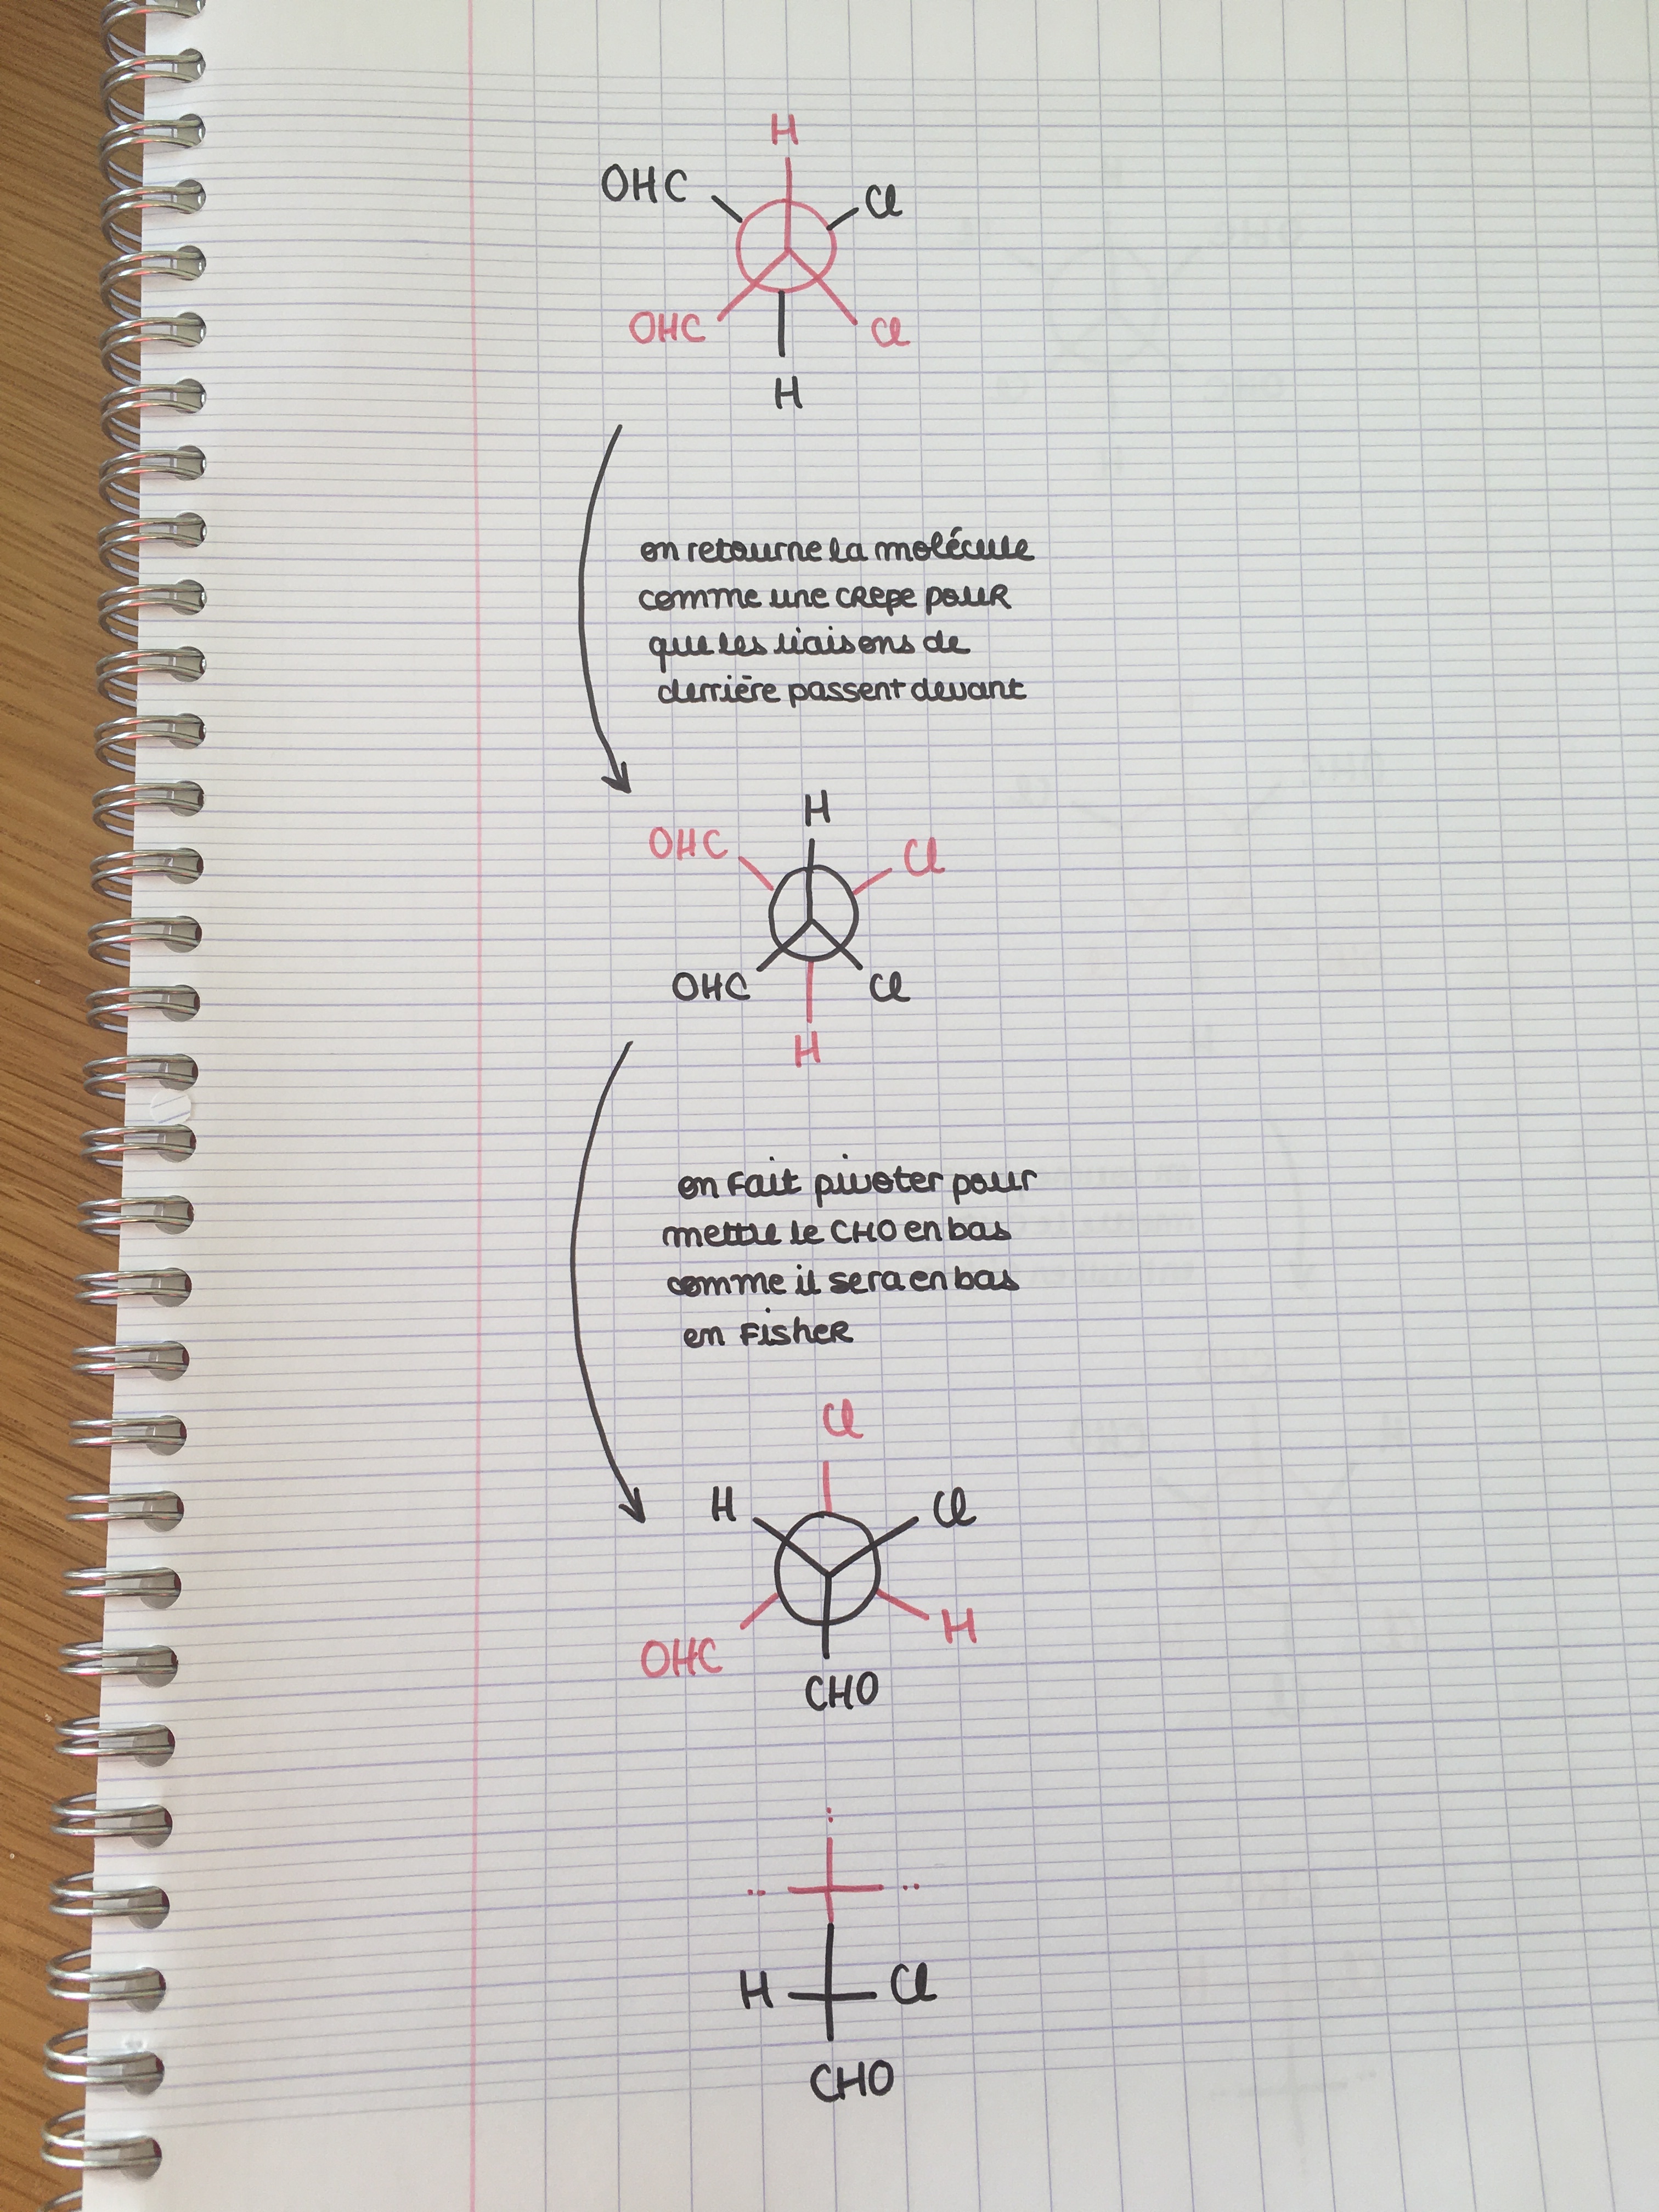 H
OHC Cl
OHC Cl
H
on retourne la molécule
comme une crepe pour
que les liaisons de
derrière passent devant
H
OHC Cl
OHC Cl
H
on fait pivoter pour
mettre le CHO en bas
comme il sera en bas
en Fisher
Cl
H Cl
OHC H
CHO
H Cl
CHO